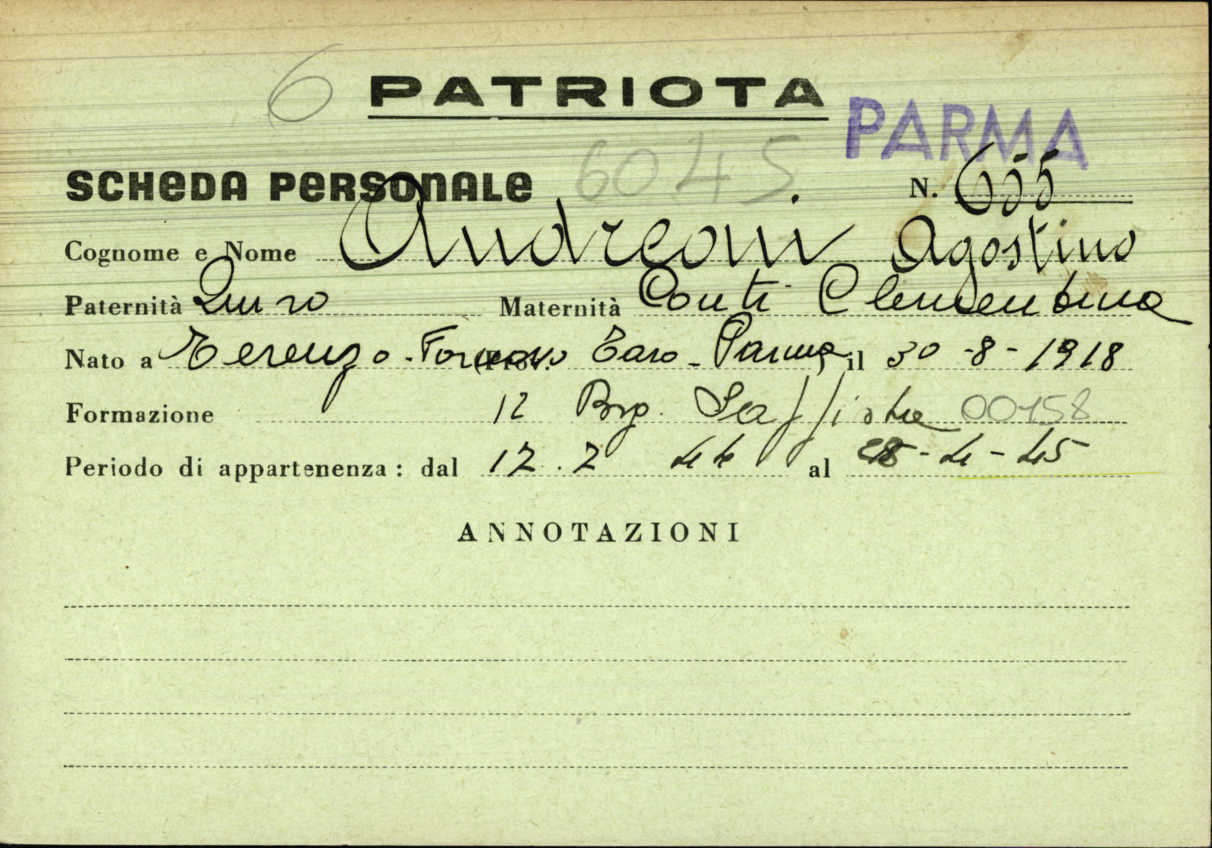 6 PATRIOTA PARMA
SCHEDA PERSONALE 6045 N. 655
Cognome e Nome Andreoni Agostino
Paternità Maternità Conti Clementina
Nato a Terenzo - Fornovo Taro - Parma (Prov. ) il 30 - 8 - 1918
Formazione 12 Brg. 00158
Periodo di appartenenza : dal 12 . 2 44 al - 4 - 45
ANNOTAZIONI